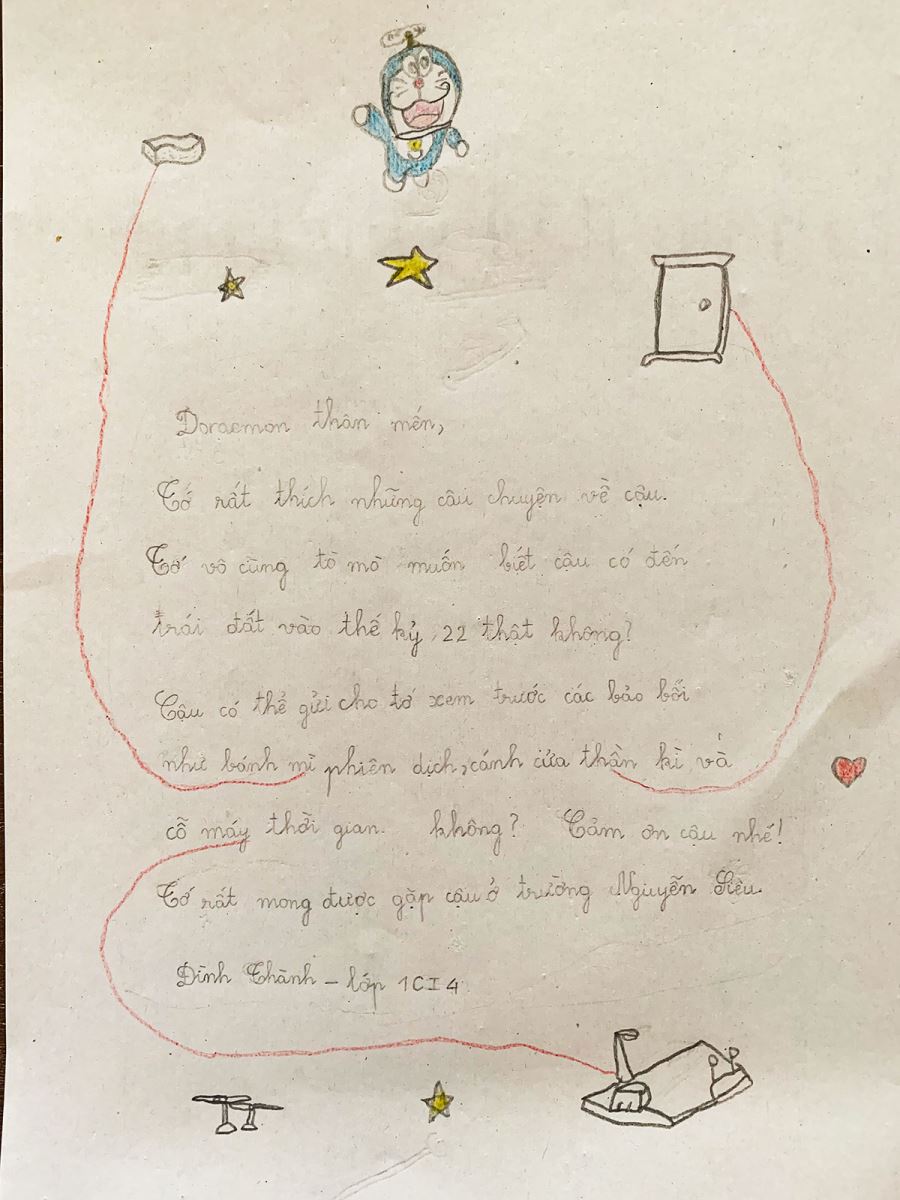 Doraemon thân mến,
Tớ rất thích những câu chuyện về cậu.
Tớ vô cùng tò mò muốn biết cậu có đến
trái đất vào thế kỷ 22 thật không?
Cậu có thể gửi cho tớ xem trước các bảo bối
như bánh mì phiên dịch, cánh cửa thần kì và
cỗ máy thời gian. không? Cảm ơn cậu nhé!
Tớ rất mong được gặp cậu ở trường Nguyễn Siêu.
Đình Thành - lớp 1CI4